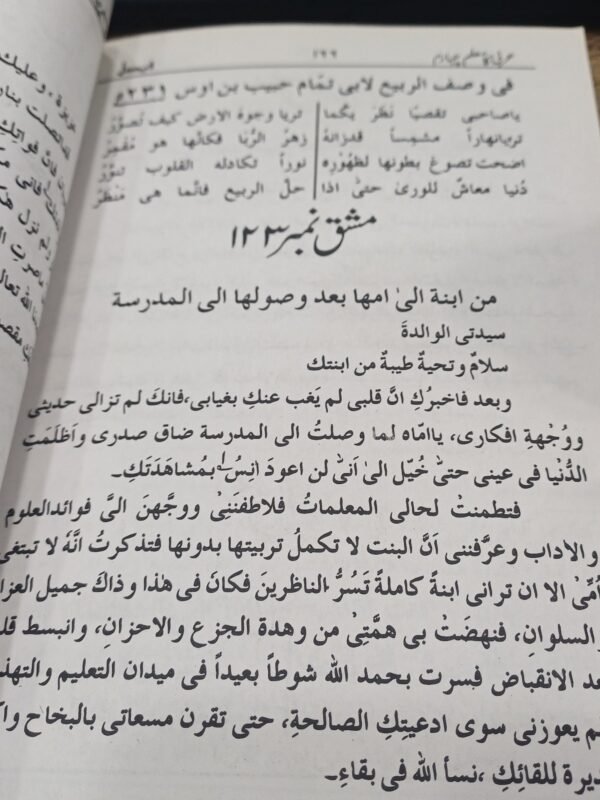 عربی کا معلم چہارم ۱۶۶
فی وصف الربیع لابی تمّام حبیب بن اوس (۲۳۱ھ)
یاصاحبی تقصیّا نظریکما تریا وجوهَ الارض کیف تُصوَّرُ
تریا نهاراً مشمساً قدزانهٗ زهرُ الرُّبا فکانّما هو مُقمِرُ
اضحت تصوغ بطونها لظهورہٖ نوراً تکادلهُ القلوب تنوَّرُ
دُنیا معاشٌ للوریٰ حتیّٰ اذا حلّ الربیع فانّما هی مَنظَرُ
مشق نمبر ۱۲۳
من ابنة الیٰ امها بعد وصولها الی المدرسة
سیدتی الوالدةَ
سلامٌ و تحیةٌ طیبةٌ من ابنتك
وبعد فاخبرُكِ انَّ قلبی لم یَغب عنكِ بغیابی، فانكَ لم تزالی حدیثی
ووُجْهةِ افکاری، یاامّاه لما وصلتُ الی المدرسة ضاق صدری واَظلَمَتِ
الدُّنْیا فی عینی حتیّٰ خُیّل الیٰ اَنیّٰ لن اعودَ انِسُ بمُشاهَدَتَكِ۔
فتطمنتْ لحالی المعلماتُ فلاطفنَنِیْ ووجَّهنَ الیَّ فوائدالعلوم
والاداب وعرَّفننی اَنَّ البنت لا تکملُ تربیتها بدونها فتذکرتُ انَّهٗ لا تبتغی
اُمِّیْ الا ان ترانی ابنةً کاملةً تَسُرُّ الناظرینَ فکانَ فی هٰذا وذاكَ جمیل العزا
والسلوانِ، فنهضَتْ بی همَّتِیْ من وهدة الجزع والاحزانِ، وانبسط قلـ
عد الانقباض فسرت بحمد الله شوطاً بعیداً فی میدان التعلیم والتهذ
لم یعوزنی سوی ادعیتِكِ الصالحةِ، حتی تقرن مسعاتی بالبخاح واک
دیرة للقائِكِ، نسأ الله فی بقاءِ۔